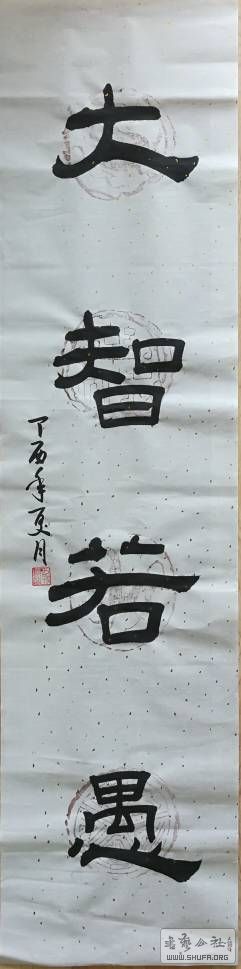 大智若愚
丁酉年夏月
书艺公社
WWW.SHUFA.ORG